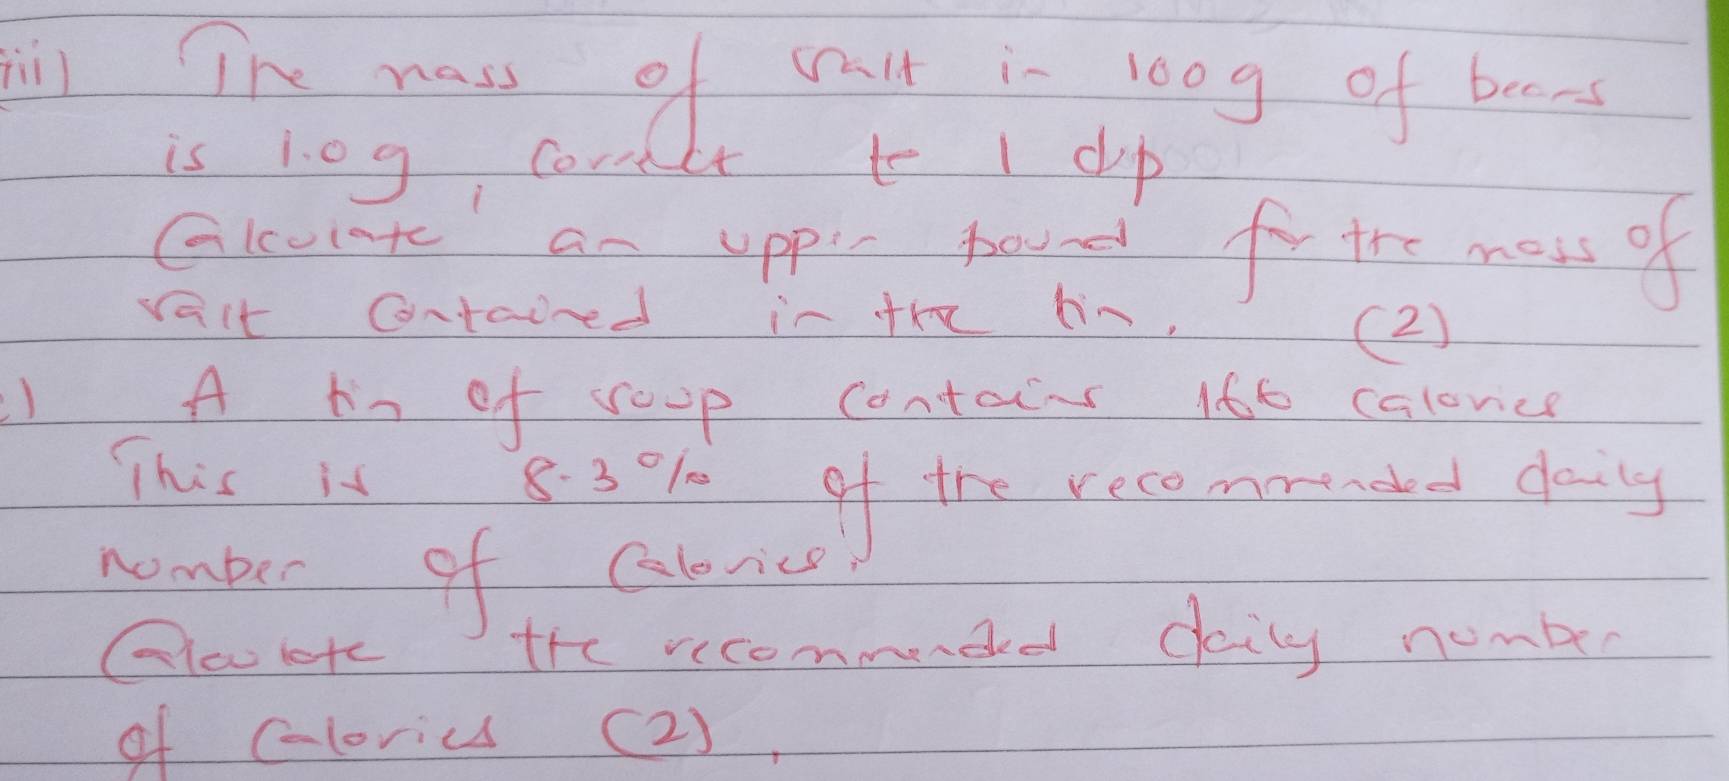 iii) The mass of salt in 100g of beans
is 1.0g, correct to 1 dp
Calculate an upper bound for the mass of
salt contained in the tin. (2)
c) A tin of soup contains 166 calories
This is 8.3% of the recommended daily
number of Calories.
Calculate the recommended daily number
of Calories (2).